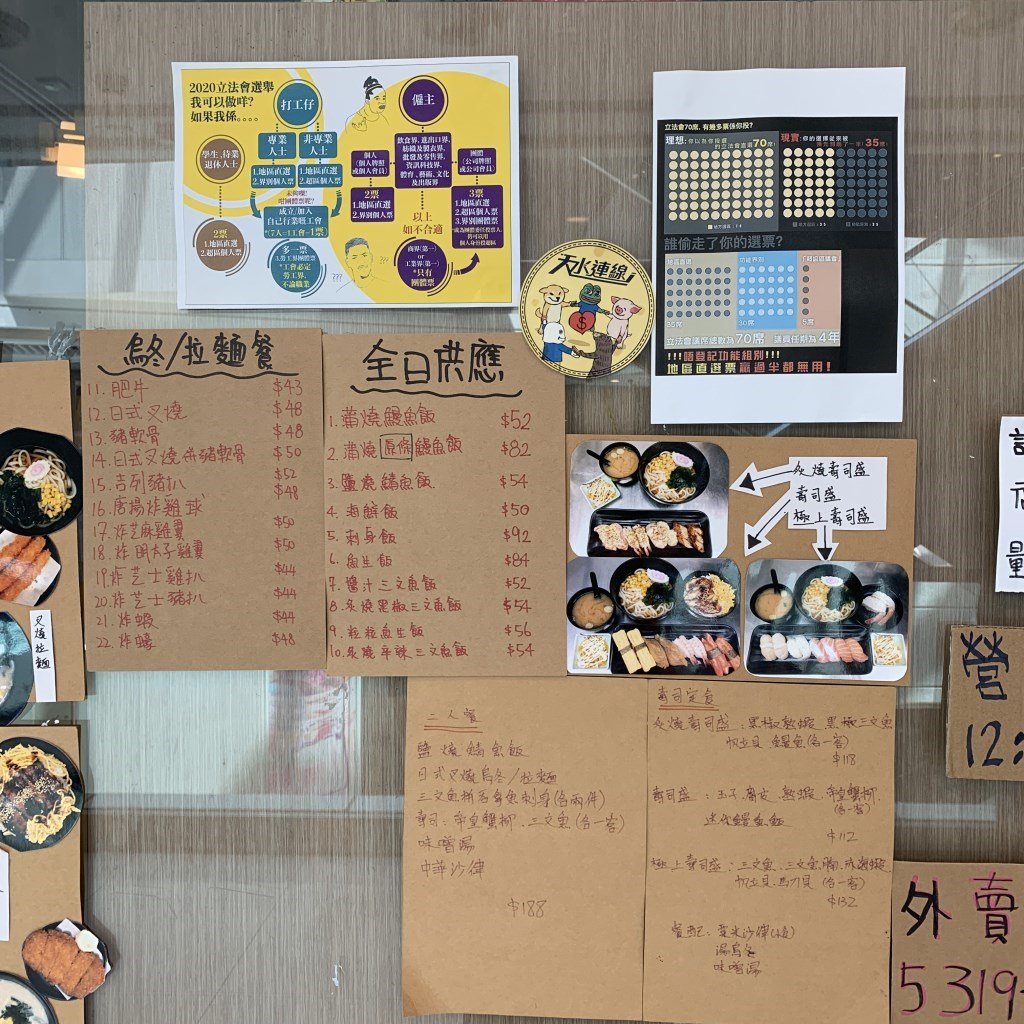 2020立法會選舉
我可以做咩?
如果我係....
打工仔
僱主
專業
人士
非專業
人士
學生、待業
退休人士
1.地區直選
2.界別個人票
1.地區直選
2.超區個人票
未夠喉?
咁團體票呢?
成立/加入
自己行業嘅工會
(7人=1工會=1票)
2票
1.地區直選
2.超區個人票
多一票
3.勞工界團體票
*工會必定
勞工界,
不論職業
???
???
個人
(個人牌照
或個人會員)
飲食界、進出口界、
紡織及製衣界、
批發及零售界、
資訊科技界、
體育、藝術、文化
及出版界
團體
(公司牌照
或公司會員)
2票
1.地區直選
2.界別個人票
3票
1.地區直選
2.超區個人票
3.界別團體票
以上
如不合適
商界(第一)
or
工業界(第一)
*只有
團體票
天水連線
立法會70席, 有幾多票係你投?
理想:你以為你投選
的立法會直選70席!
現實:你的選擇從來被
35席!
誰偷走了你的選票?
地區直選
功能界別
「超級區議會」
35席
30席
5席
立法會議席總數為70席 議員任期為4年
!!!唔登記功能組別!!!
地區直選票贏過半都無用!
烏冬/拉麵餐
11. 肥牛 $43
12. 日式叉燒 $48
13. 豬軟骨 $48
14. 日式叉燒併豬軟骨 $50
15. 吉列豬扒 $52
16. 唐揚炸雞球 $48
17. 炸芝麻雞翼 $50
18. 炸明太子雞翼 $50
19. 炸芝士雞扒 $44
20. 炸芝士豬扒 $44
21. 炸蝦 $44
22. 炸蠔 $48
全日供應
1. 蒲燒鰻魚飯 $52
2. 蒲燒原條鰻魚飯 $82
3. 鹽燒鯖魚飯 $54
4. 海鮮飯 $50
5. 刺身飯 $92
6. 魚生飯 $84
7. 醬汁三文魚飯 $52
8. 炙燒黑椒三文魚飯 $54
9. 粒粒魚生飯 $56
10. 炙燒辛辣三文魚飯 $54
炙燒壽司盛
壽司盛
極上壽司盛
叉燒拉麵
二人餐
鹽燒鯖魚飯
日式叉燒烏冬/拉麵
三文魚拼吞拿魚刺身(各兩件)
壽司:帝皇蟹柳、三文魚(各一客)
味噌湯
中華沙律
$188
壽司定食
炙燒壽司盛:黑椒熟蝦 黑椒三文魚
帆立貝 鰻魚(各一客)
$118
壽司盛:玉子 腐皮 熟蝦、帝皇蟹柳、
(各一客)
迷你鰻魚飯
$112
極上壽司盛:三文魚、三文魚腩
帆立貝、馬刀貝(各一客)
$132
餐配:粟米沙律
湯烏冬
味噌湯
量
營
12:
外賣
5319-